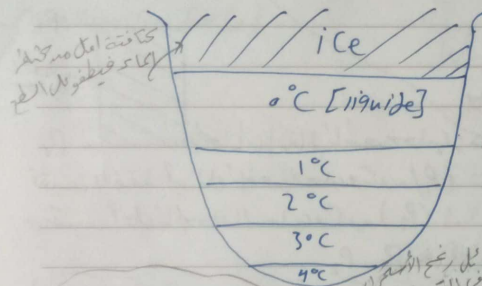 ice
كثافته اقل من كثافة
الماء فيطفو على السطح
0°C [liquide]
1°C
2°C
3°C
4°C